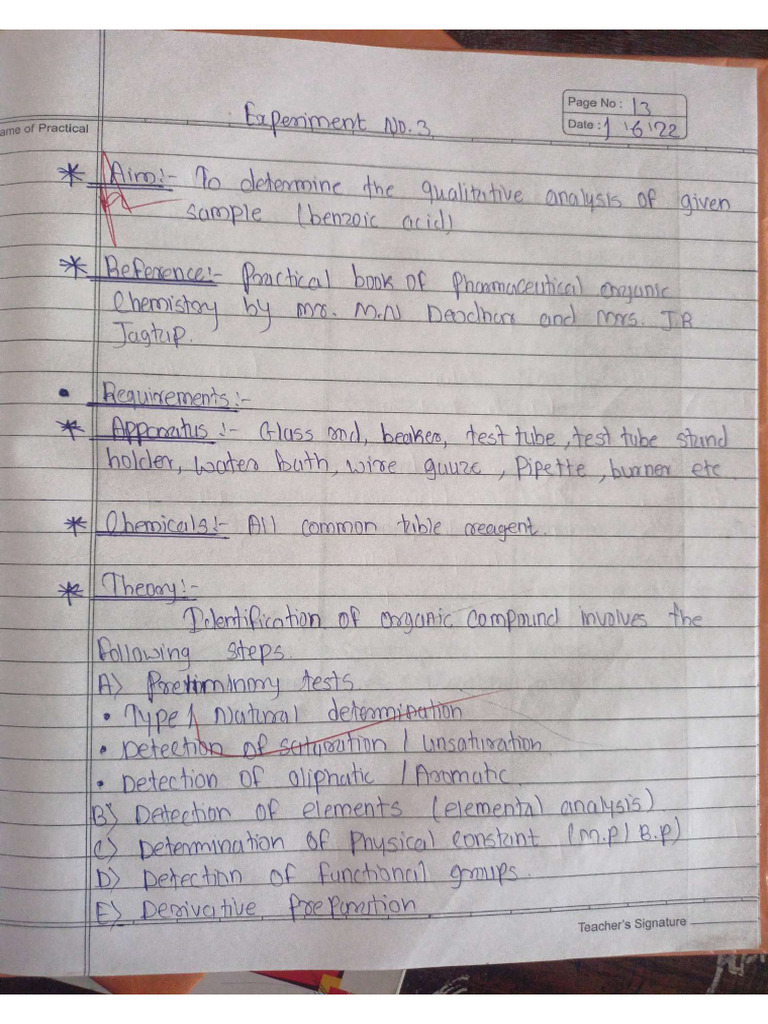 Experiment No. 3
Page No : 13
Date : 1 '6'22
ame of Practical
* Aim:- To determine the qualitative analysis of given
sample (benzoic acid)
* Reference:- Practical book of Pharmaceutical organic
Chemistry by mrs. M.N Deodhar and Mrs. J.R
Jagtup.
• Requirements:-
* Apparatus :- Glass rod, beaker, test tube, test tube stand
holder, water bath, wire gauze, Pipette, burner etc
* Chemicals:- All common table reagent.
* Theory:-
Identification of organic compound involves the
following steps.
A) Preliminary tests
• Type / Natural determination
• Detection of saturation / unsaturation
• Detection of aliphatic / Aromatic
B) Detection of elements (elemental analysis)
C) Determination of Physical constant (M.P / B.P)
D) Detection of functional groups.
E) Derivative Preparation
Teacher's Signature